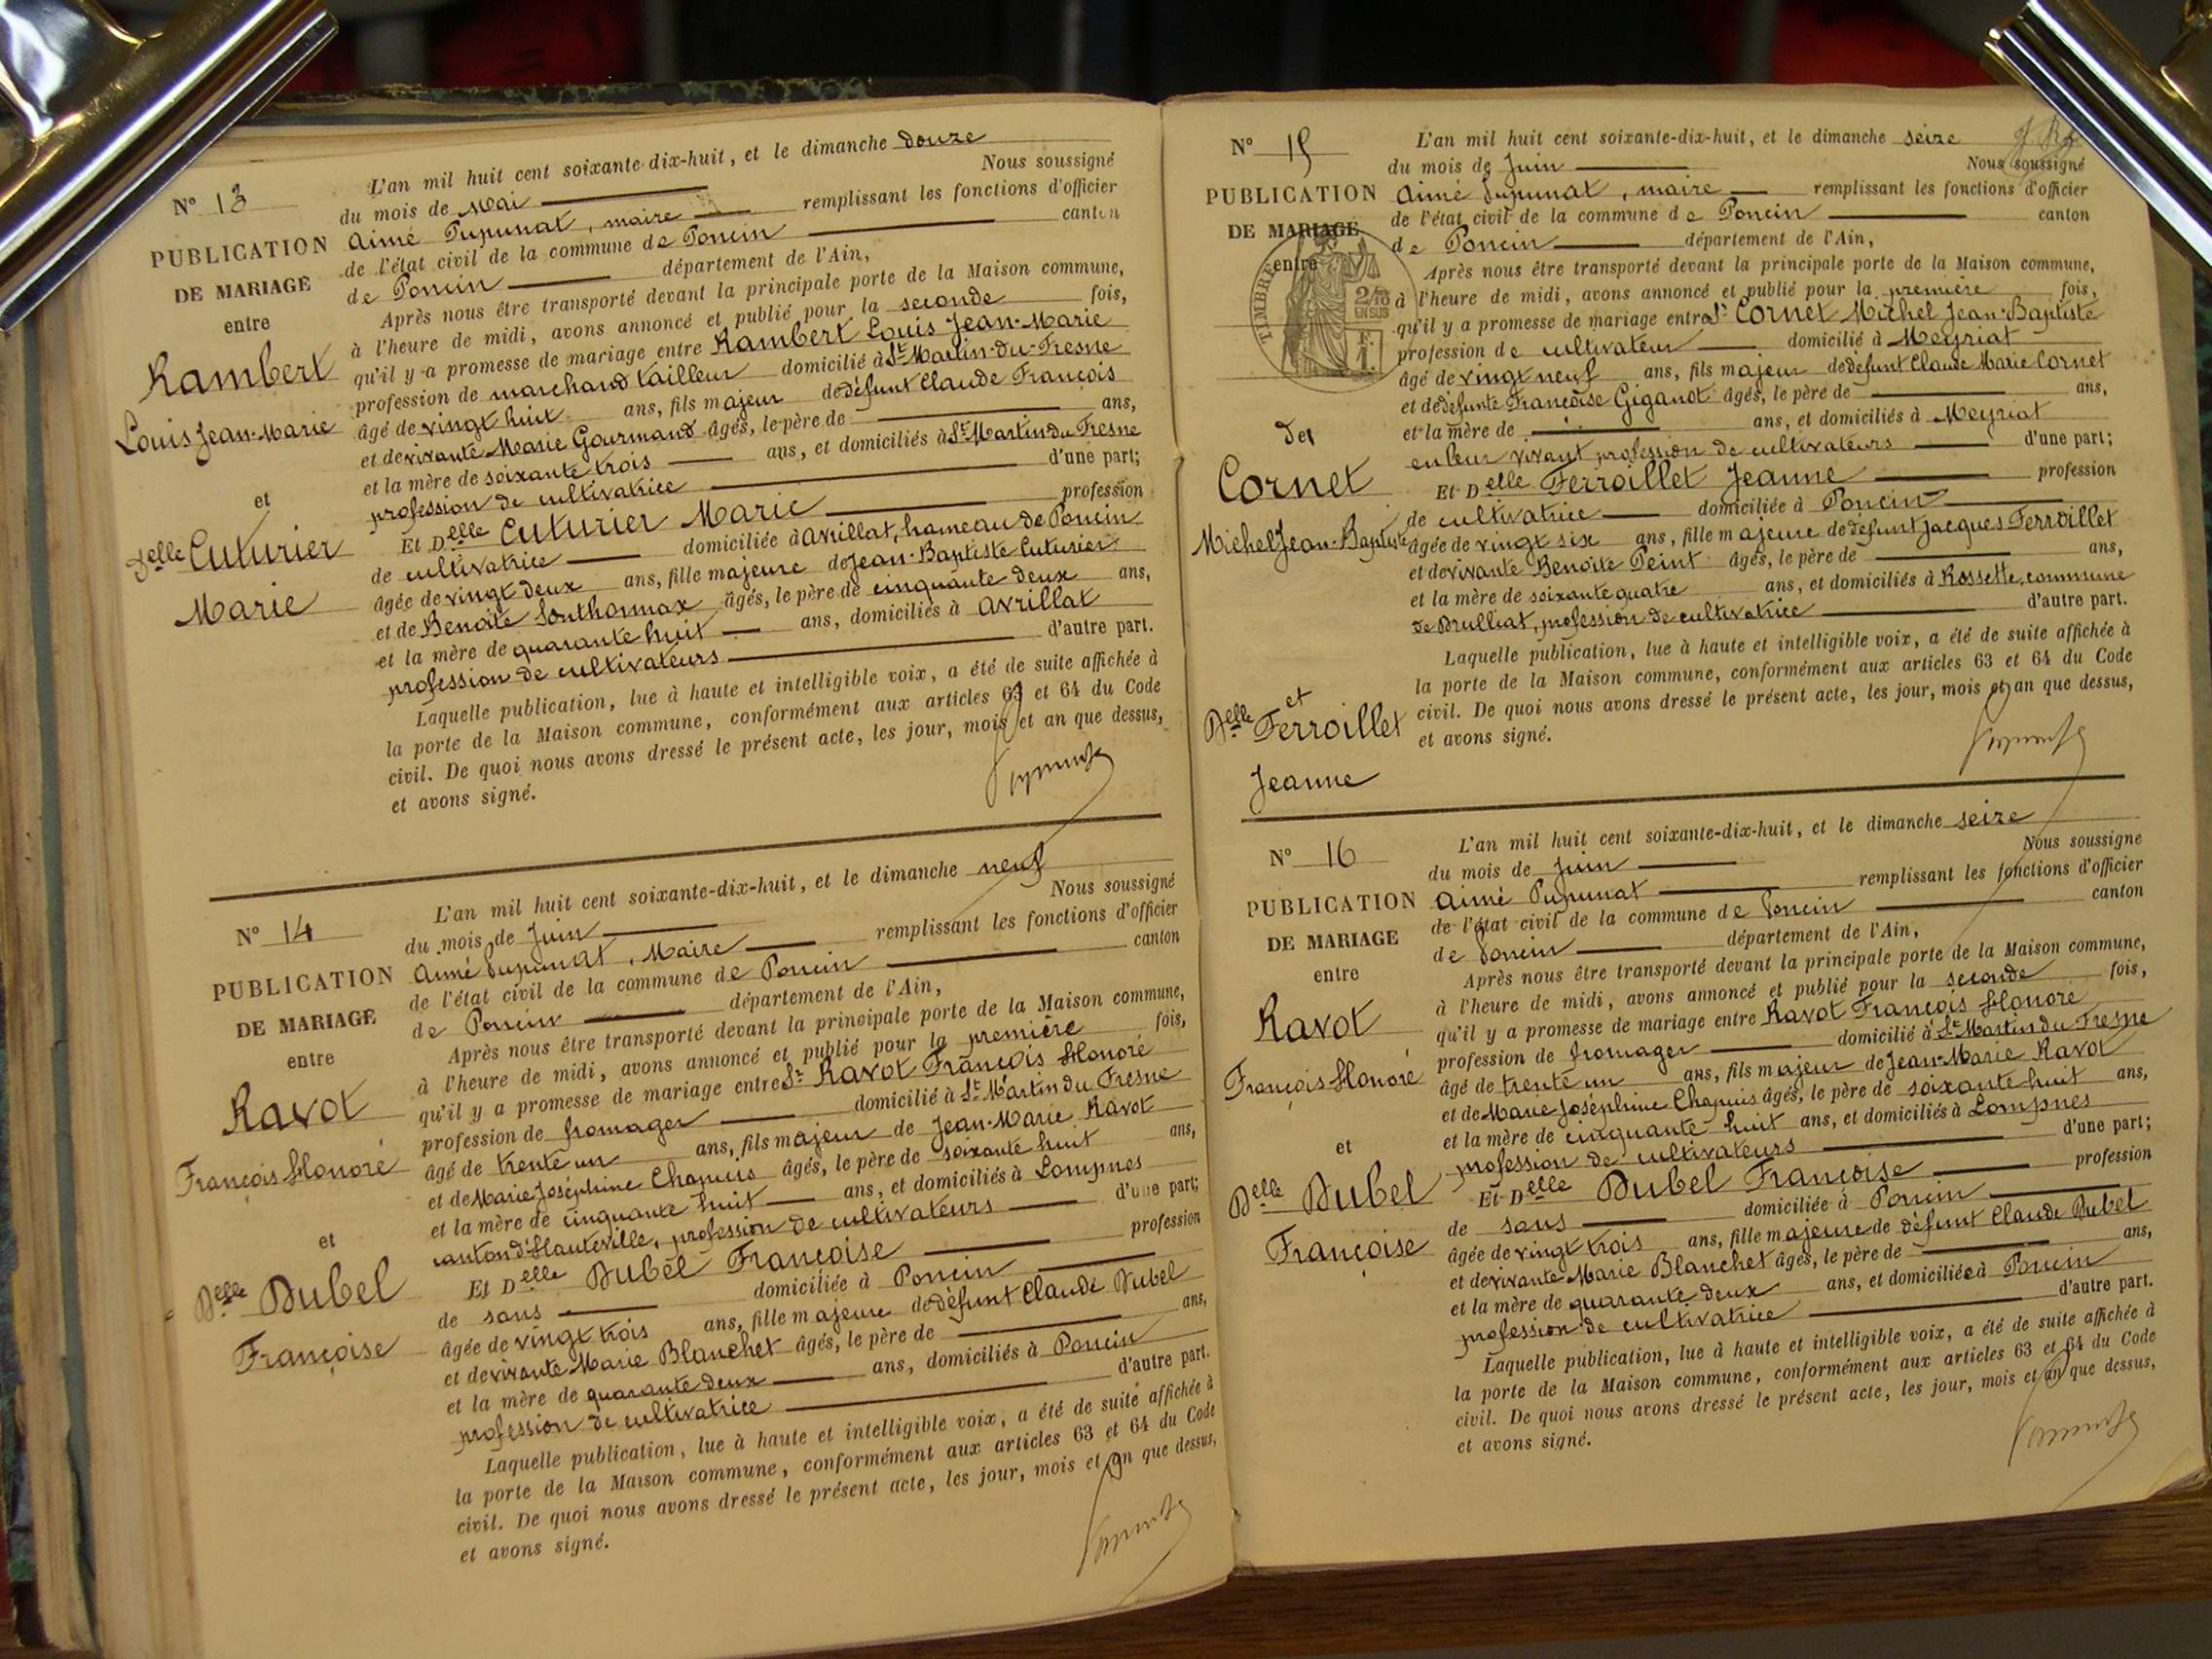 N° 13
PUBLICATION
DE MARIAGE
entre
Rambert
Louis Jean-Marie
et
Delle Cuturier
Marie
L'an mil huit cent soixante-dix-huit, et le dimanche douze
du mois de Mai Nous soussigné
Aimé Pupunat, maire remplissant les fonctions d'officier
de l'état civil de la commune de Poncin canton
de Poncin département de l'Ain,
Après nous être transporté devant la principale porte de la Maison commune,
à l'heure de midi, avons annoncé et publié pour la seconde fois,
qu'il y a promesse de mariage entre Rambert Louis Jean-Marie
profession de marchand tailleur domicilié à St Martin-du-Fresne
âgé de vingt huit ans, fils majeur de défunt Claude François
et de vivante Marie Gourmand âgés, le père de ans,
et la mère de soixante trois ans, et domiciliés à St Martin du Fresne
profession de cultivatrice d'une part;
Et Delle Cuturier Marie profession
de cultivatrice domiciliée à Avrillat, hameau de Poncin
âgée de vingt deux ans, fille majeure de Jean-Baptiste Cuturier
et de Benoite Southonnax âgés, le père de cinquante deux ans,
et la mère de quarante huit ans, domiciliés à Avrillat
profession de cultivateurs d'autre part.
Laquelle publication, lue à haute et intelligible voix, a été de suite affichée à
la porte de la Maison commune, conformément aux articles 63 et 64 du Code
civil. De quoi nous avons dressé le présent acte, les jour, mois et an que dessus,
et avons signé.
N° 14
PUBLICATION
DE MARIAGE
entre
Ravot
François Honoré
et
Delle Dubel
Françoise
L'an mil huit cent soixante-dix-huit, et le dimanche neuf
du mois de Juin Nous soussigné
Aimé Pupunat, Maire remplissant les fonctions d'officier
de l'état civil de la commune de Poncin canton
de Poncin département de l'Ain,
Après nous être transporté devant la principale porte de la Maison commune,
à l'heure de midi, avons annoncé et publié pour la première fois,
qu'il y a promesse de mariage entre Sr Ravot François Honoré
profession de fromager domicilié à St Martin du Fresne
âgé de trente un ans, fils majeur de Jean-Marie Ravot
et de Marie Joséphine Chapuis âgés, le père de soixante huit ans,
et la mère de cinquante huit ans, et domiciliés à Lompnes
canton d'Hauteville, profession de cultivateurs d'une part;
Et Delle Dubel Françoise profession
de sans domiciliée à Poncin
âgée de vingt trois ans, fille majeure de défunt Claude Dubel
et de vivante Marie Blanchet âgés, le père de ans,
et la mère de quarante deux ans, domiciliés à Poncin
profession de cultivatrice d'autre part.
Laquelle publication, lue à haute et intelligible voix, a été de suite affichée à
la porte de la Maison commune, conformément aux articles 63 et 64 du Code
civil. De quoi nous avons dressé le présent acte, les jour, mois et an que dessus,
et avons signé.
N° 15
PUBLICATION
DE MARIAGE
entre
TIMBRE
2/10
EN SUS
F.
1.
Cornet
Michel Jean-Baptiste
et
Delle Ferroillet
Jeanne
L'an mil huit cent soixante-dix-huit, et le dimanche seize
du mois de Juin Nous soussigné
Aimé Pupunat, maire remplissant les fonctions d'officier
de l'état civil de la commune de Poncin canton
de Poncin département de l'Ain,
Après nous être transporté devant la principale porte de la Maison commune,
à l'heure de midi, avons annoncé et publié pour la première fois,
qu'il y a promesse de mariage entre Sr Cornet Michel Jean-Baptiste
profession de cultivateur domicilié à Meyriat
âgé de vingt neuf ans, fils majeur de défunt Claude Marie Cornet
et de défunte Françoise Gigandt âgés, le père de ans,
et la mère de ans, et domiciliés à Meyriat
en leur vivant profession de cultivateurs d'une part;
Et Delle Ferroillet Jeanne profession
de cultivatrice domiciliée à Poncin
âgée de vingt six ans, fille majeure de défunt Jacques Ferroillet
et de vivante Benoite Peint âgés, le père de ans,
et la mère de soixante quatre ans, et domiciliés à Rossette, commune
de Drulliat, profession de cultivatrice d'autre part.
Laquelle publication, lue à haute et intelligible voix, a été de suite affichée à
la porte de la Maison commune, conformément aux articles 63 et 64 du Code
civil. De quoi nous avons dressé le présent acte, les jour, mois et an que dessus,
et avons signé.
N° 16
PUBLICATION
DE MARIAGE
entre
Ravot
François Honoré
et
Delle Dubel
Françoise
L'an mil huit cent soixante-dix-huit, et le dimanche seize
du mois de Juin Nous soussigné
Aimé Pupunat remplissant les fonctions d'officier
de l'état civil de la commune de Poncin canton
de Poncin département de l'Ain,
Après nous être transporté devant la principale porte de la Maison commune,
à l'heure de midi, avons annoncé et publié pour la seconde fois,
qu'il y a promesse de mariage entre Ravot François Honoré
profession de fromager domicilié à St Martin du Fresne
âgé de trente un ans, fils majeur de Jean-Marie Ravot
et de Marie Joséphine Chapuis âgés, le père de soixante huit ans,
et la mère de cinquante huit ans, et domiciliés à Lompnes
profession de cultivateurs d'une part;
Et Delle Dubel Françoise profession
de sans domiciliée à Poncin
âgée de vingt trois ans, fille majeure de défunt Claude Dubel
et de vivante Marie Blanchet âgés, le père de ans,
et la mère de quarante deux ans, et domiciliée à Poncin
profession de cultivatrice d'autre part.
Laquelle publication, lue à haute et intelligible voix, a été de suite affichée à
la porte de la Maison commune, conformément aux articles 63 et 64 du Code
civil. De quoi nous avons dressé le présent acte, les jour, mois et an que dessus,
et avons signé.